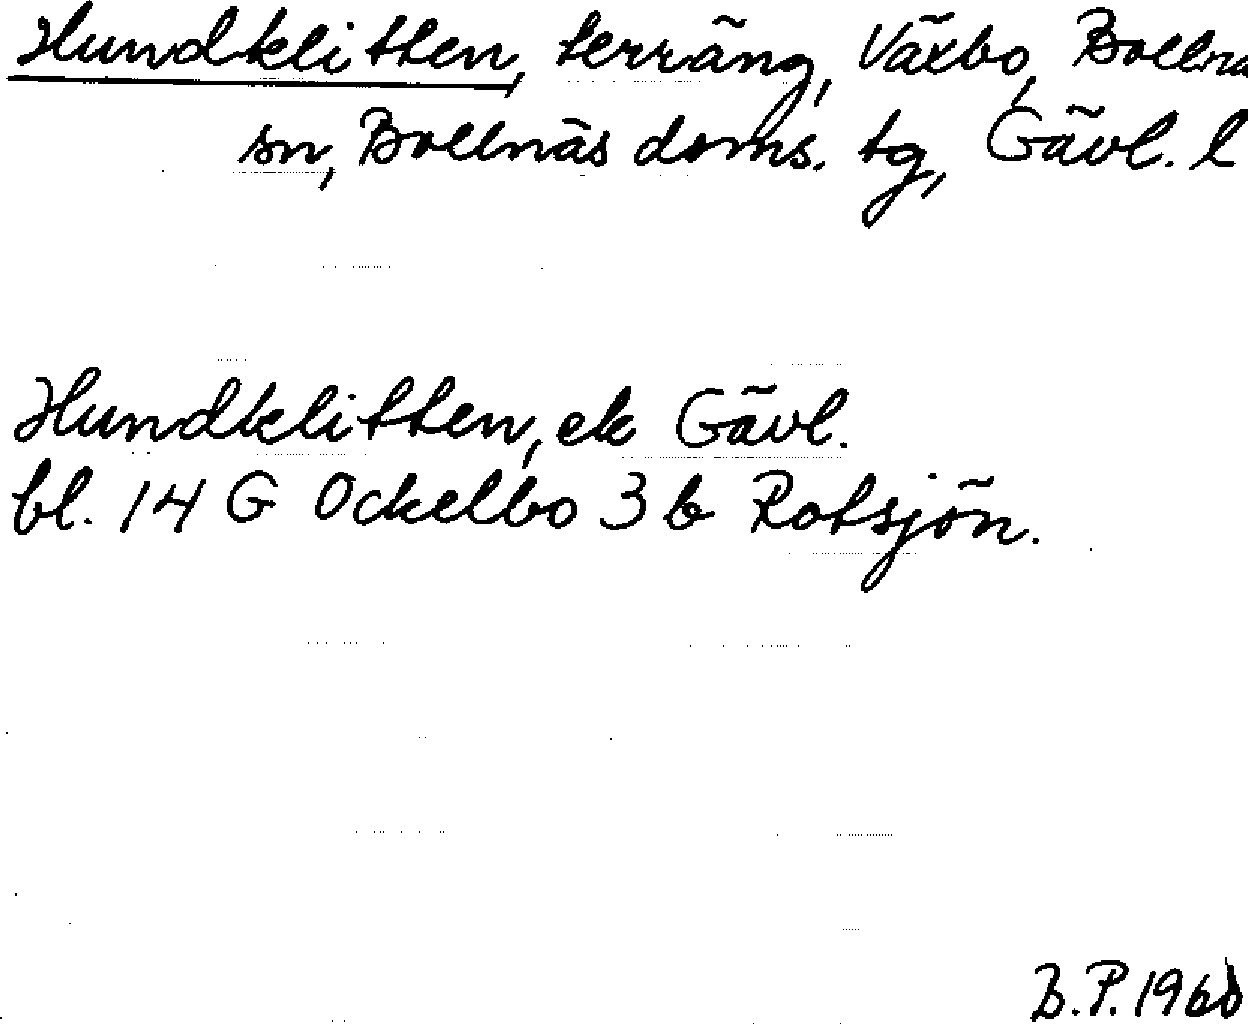 Hundklitten, terräng, Växbo, Bollnä
sn, Bollnäs doms. tg, Gävl. l
Hundklitten, ek Gävl.
bl. 14 G Ockelbo 3 b Rotsjön.
B.P. 1968